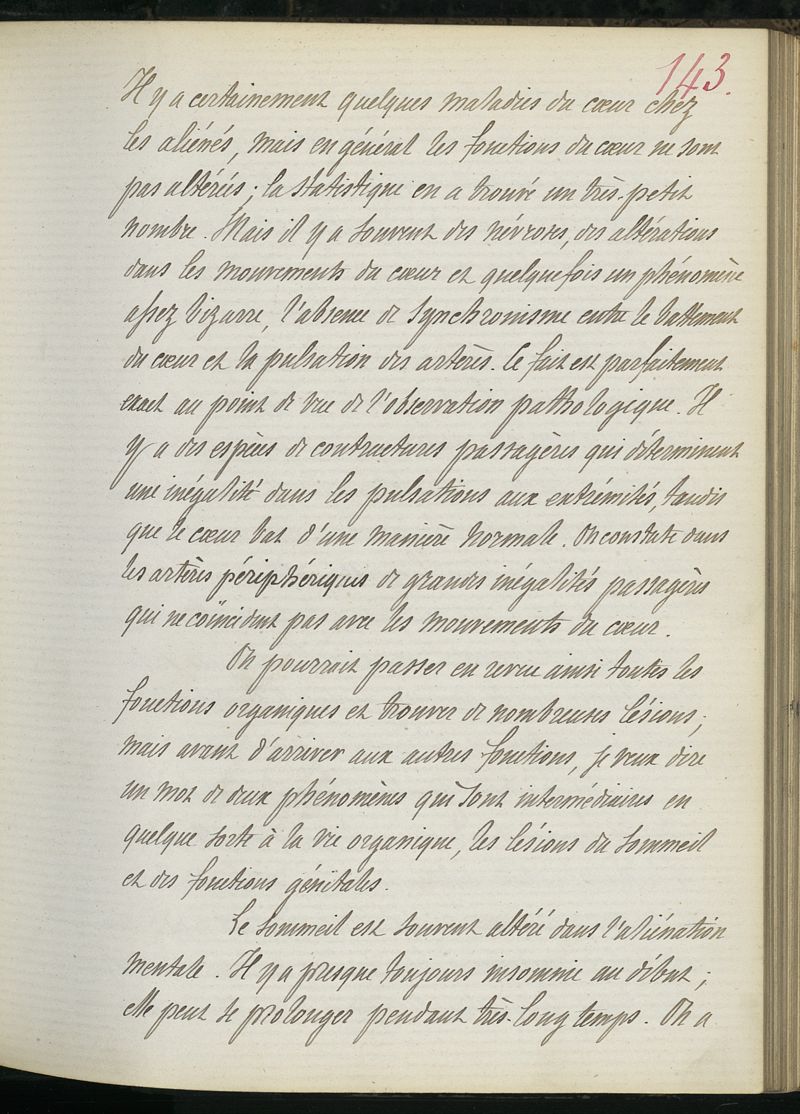 143.
Il y a certainement quelques maladies du cœur chez
les aliénés, mais en général les fonctions du cœur ne sont
pas altérées ; la statistique en a trouvé un très-petit
nombre. Mais il y a souvent des névroses, des altérations
dans les mouvements du cœur et quelquefois un phénomène
assez bizarre, l'absence de synchronisme entre le battement
du cœur et la pulsation des artères. Ce fait est parfaitement
exact au point de vue de l'observation pathologique. Il
y a des espèces de contractures passagères qui déterminent
une inégalité dans les pulsations aux extrémités, tandis
que le cœur bat d'une manière normale. On constate dans
les artères périphériques de grandes inégalités passagères
qui ne coïncident pas avec les mouvements du cœur.
On pourrait passer en revue ainsi toutes les
fonctions organiques et trouver de nombreuses lésions ;
mais avant d'arriver aux autres fonctions, je veux dire
un mot de deux phénomènes qui sont intermédiaires en
quelque sorte à la vie organique, les lésions du sommeil
et des fonctions génitales.
Le sommeil est souvent altéré dans l'aliénation
mentale. Il y a presque toujours insomnie au début ;
elle peut se prolonger pendant très-long temps. On a